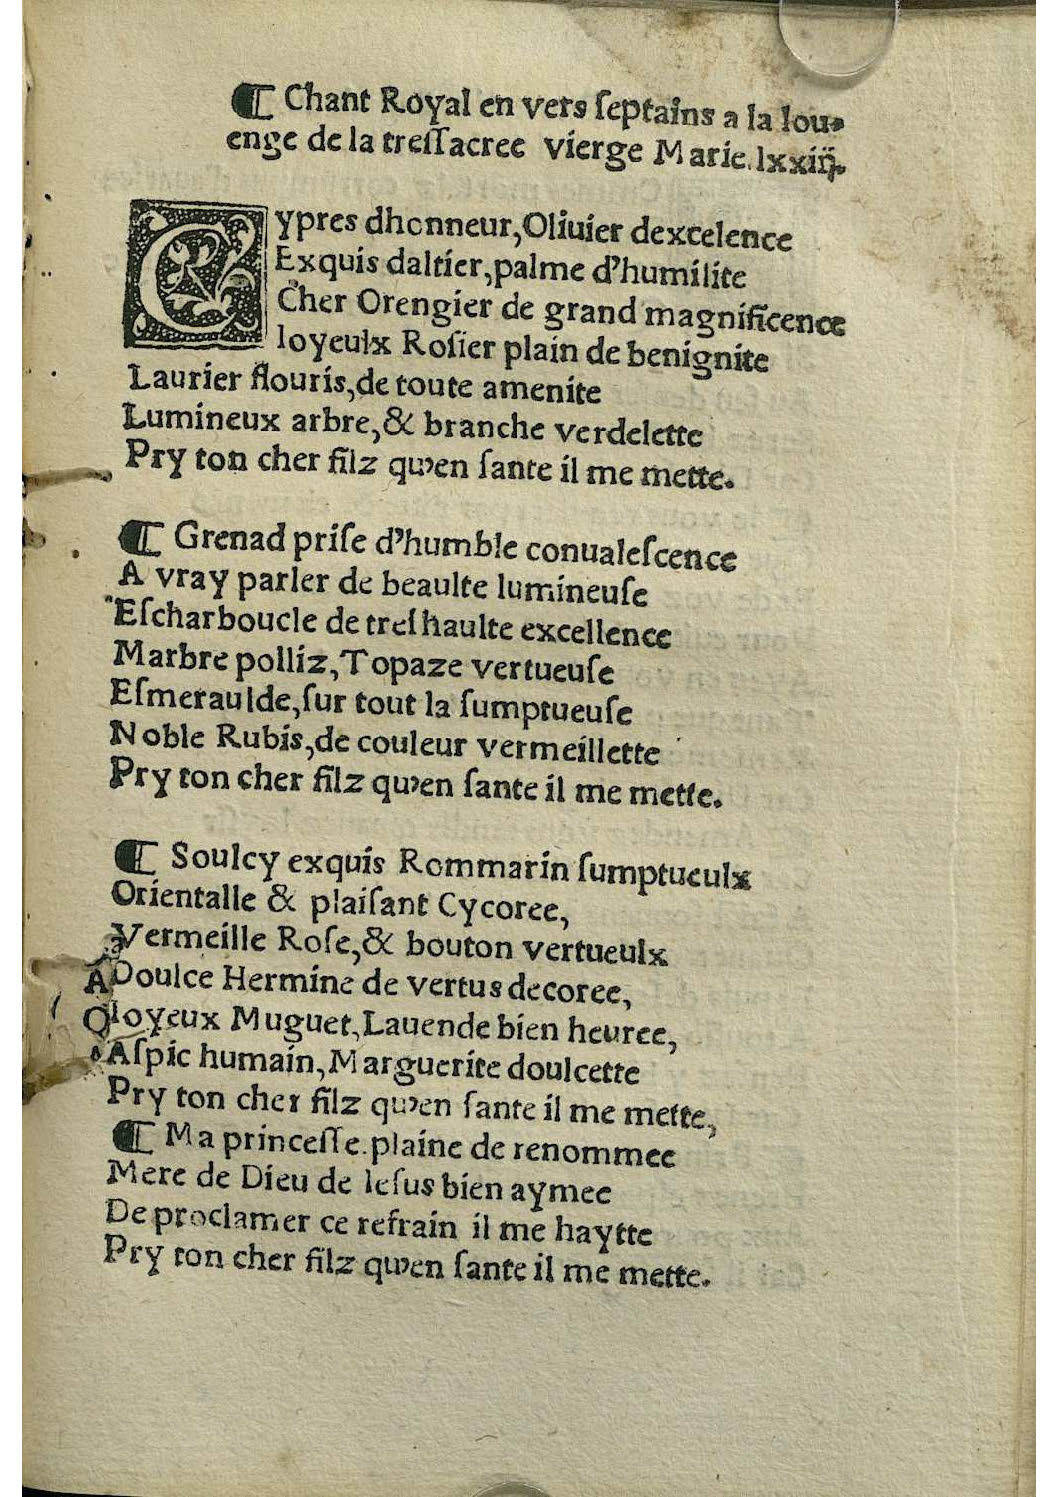 ¶ Chant Royal en vers ſeptains a la lou-
enge de la treſſacree vierge Marie. lxxiiij.
Cypres dhonneur, Oliuier dexcelence
Exquis daltier, palme d'humilite
Cher Orengier de grand magnificence
Ioyeulx Roſier plain de benignite
Laurier flouris, de toute amenite
Lumineux arbre, & branche verdelette
Pry ton cher filz qu'en ſante il me mette.
¶ Grenad priſe d'humble conualeſcence
A vray parler de beaulte lumineuſe
Eſcharboucle de treſhaulte excellence
Marbre polliz, Topaze vertueuſe
Eſmeraulde, ſur tout la ſumptueuſe
Noble Rubis, de couleur vermeillette
Pry ton cher filz qu'en ſante il me mette.
¶ Soulcy exquis Rommarin ſumptueulx
Orientalle & plaiſant Cycoree,
Vermeille Roſe, & bouton vertueulx
Doulce Hermine de vertus decoree,
Ioyeux Muguet, Lauende bien heuree,
Aſpic humain, Marguerite doulcette
Pry ton cher filz qu'en ſante il me mette,
¶ Ma princeſſe. plaine de renommee
Mere de Dieu de Ieſus bien aymee
De proclamer ce refrain il me haytte
Pry ton cher filz qu'en ſante il me mette.